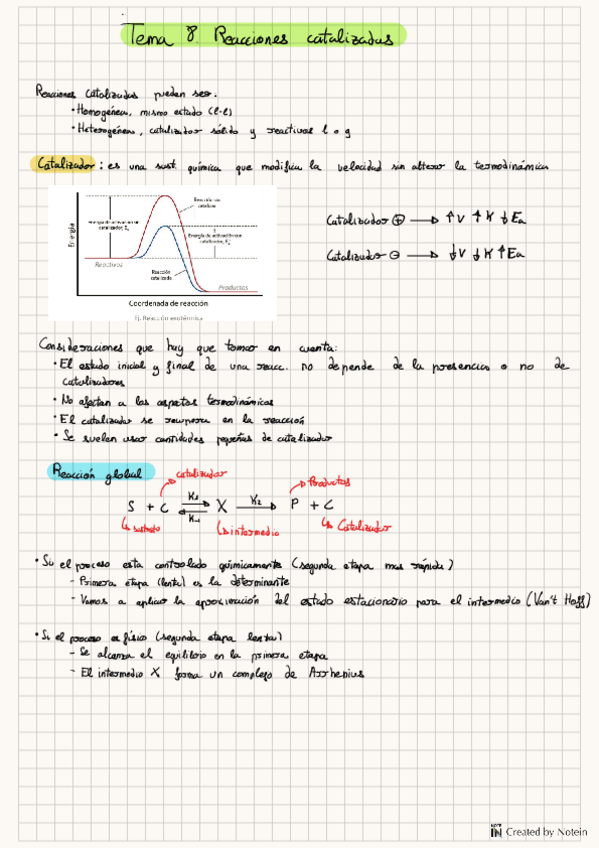 Tema 8. Reacciones catalizadas
Reacciones catalizadas pueden ser:
• Homogénea, mismo estado (l-l)
• Heterogénea, catalizador sólido y reactivos l o g
Catalizador: es una sust. química que modifica la velocidad sin alterar la termodinámica
Energía
Energía de activación sin catalizador, Ea
Reacción sin catalizar
Energía de activación con catalizador, Ea
Reacción catalizada
Reactivos
Productos
Coordenada de reacción
Ej. Reacción exotérmica
Catalizador ⊕ → ↑V ↑K ↓Ea
Catalizador ⊖ → ↓V ↓K ↑Ea
Consideraciones que hay que tomar en cuenta:
• El estado inicial y final de una reacc. no depende de la presencia o no de
catalizadores
• No afectan a los aspectos termodinámicos
• El catalizador se recupera en la reacción
• Se suelen usar cantidades pequeñas de catalizador
Reacción global
catalizador
Productos
S + C ⇌ X → P + C
K1
K-1
K2
sustrato
intermedio
Catalizador
• Si el proceso esta controlado químicamente (segunda etapa mas rápida)
- Primera etapa (lenta) es la determinante
- Vamos a aplicar la aproximación del estado estacionario para el intermedio (Van't Hoff)
• Si el proceso es físico (segunda etapa lenta)
- Se alcanza el equilibrio en la primera etapa
- El intermedio X forma un complejo de Arrhenius
NOTE IN Created by Notein